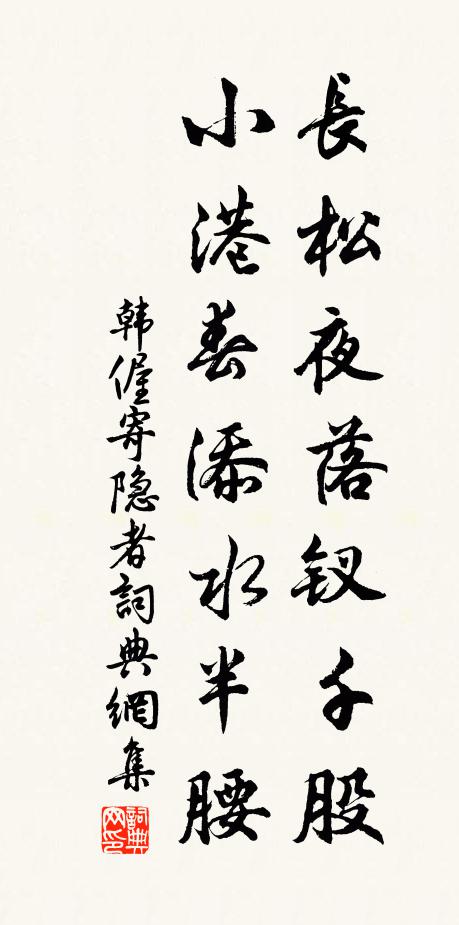 長松夜落钗千股
小港春添水半腰
韩偓寄隐者詞典網集
詞典網印